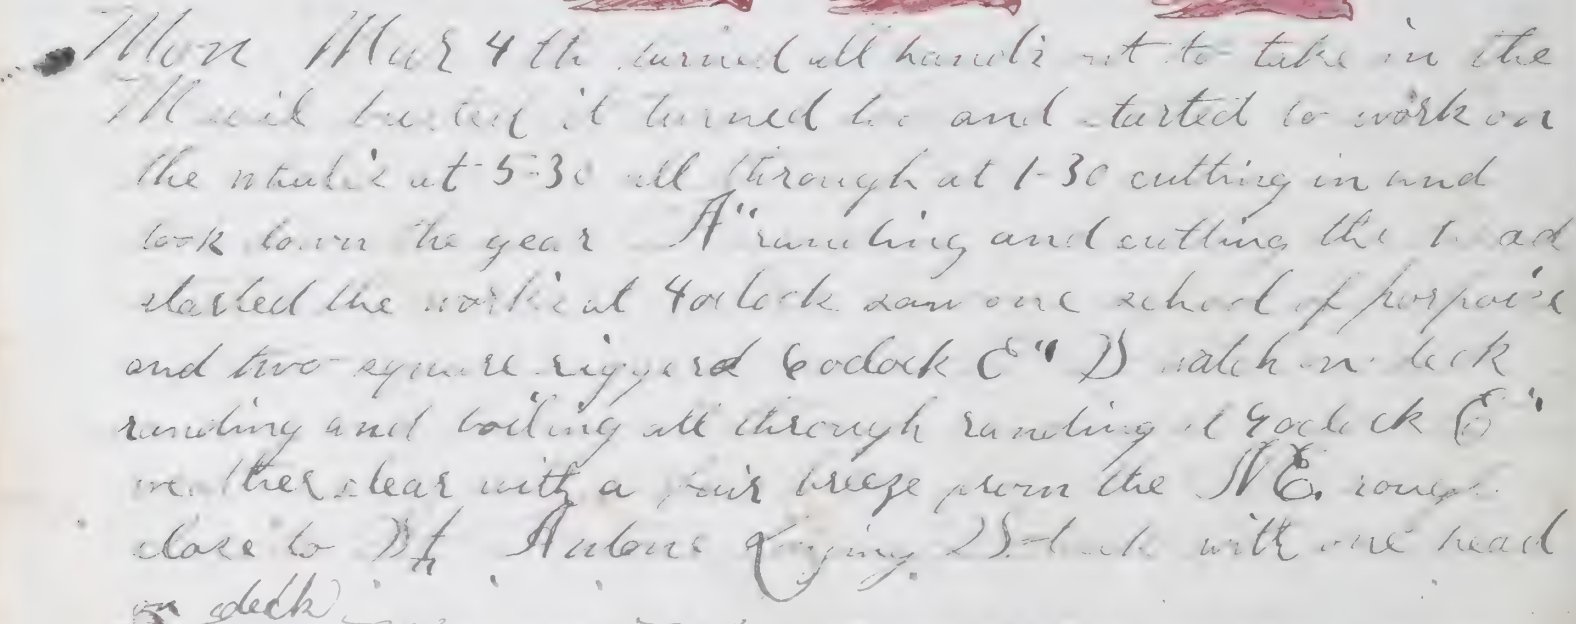 Mon Mar 4th turned all hands out to take in the
it turned to and started to work on
the whales at 5-30 all through at 1-30 cutting in and
took down the gear running and cutting the head
started the works at 4oclock saw one school of porpoise
and two square riggerd 6oclock watch on deck
runding and boiling all through runding at 9oclock
weather clear with a fair breeze from the NE. rough
close to with one head
on deck